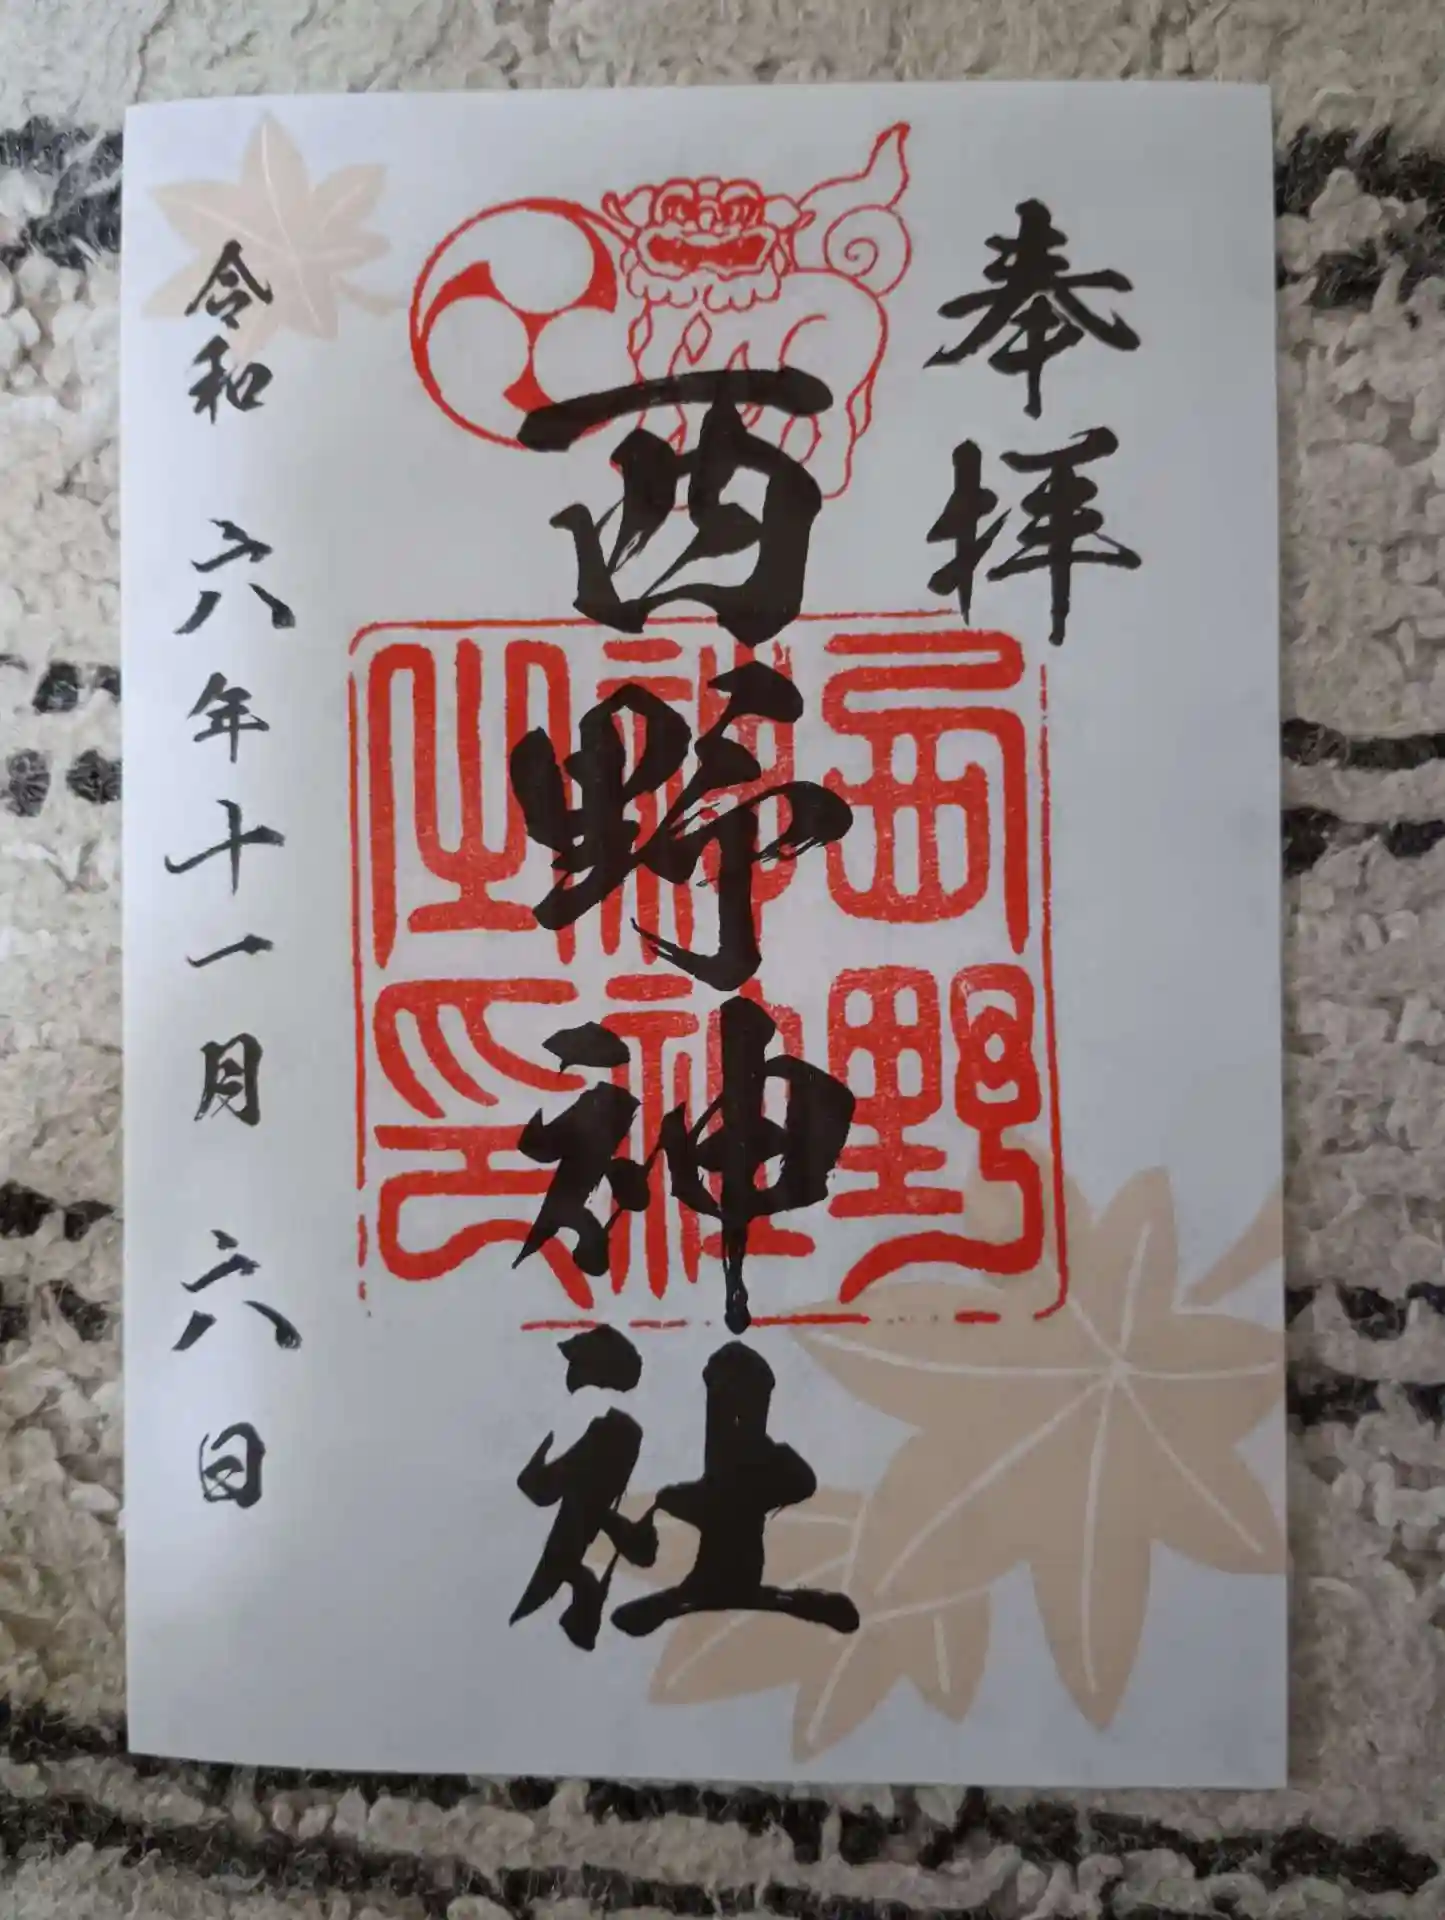 奉拝
西野神社
西野神社之印
令和六年十一月六日